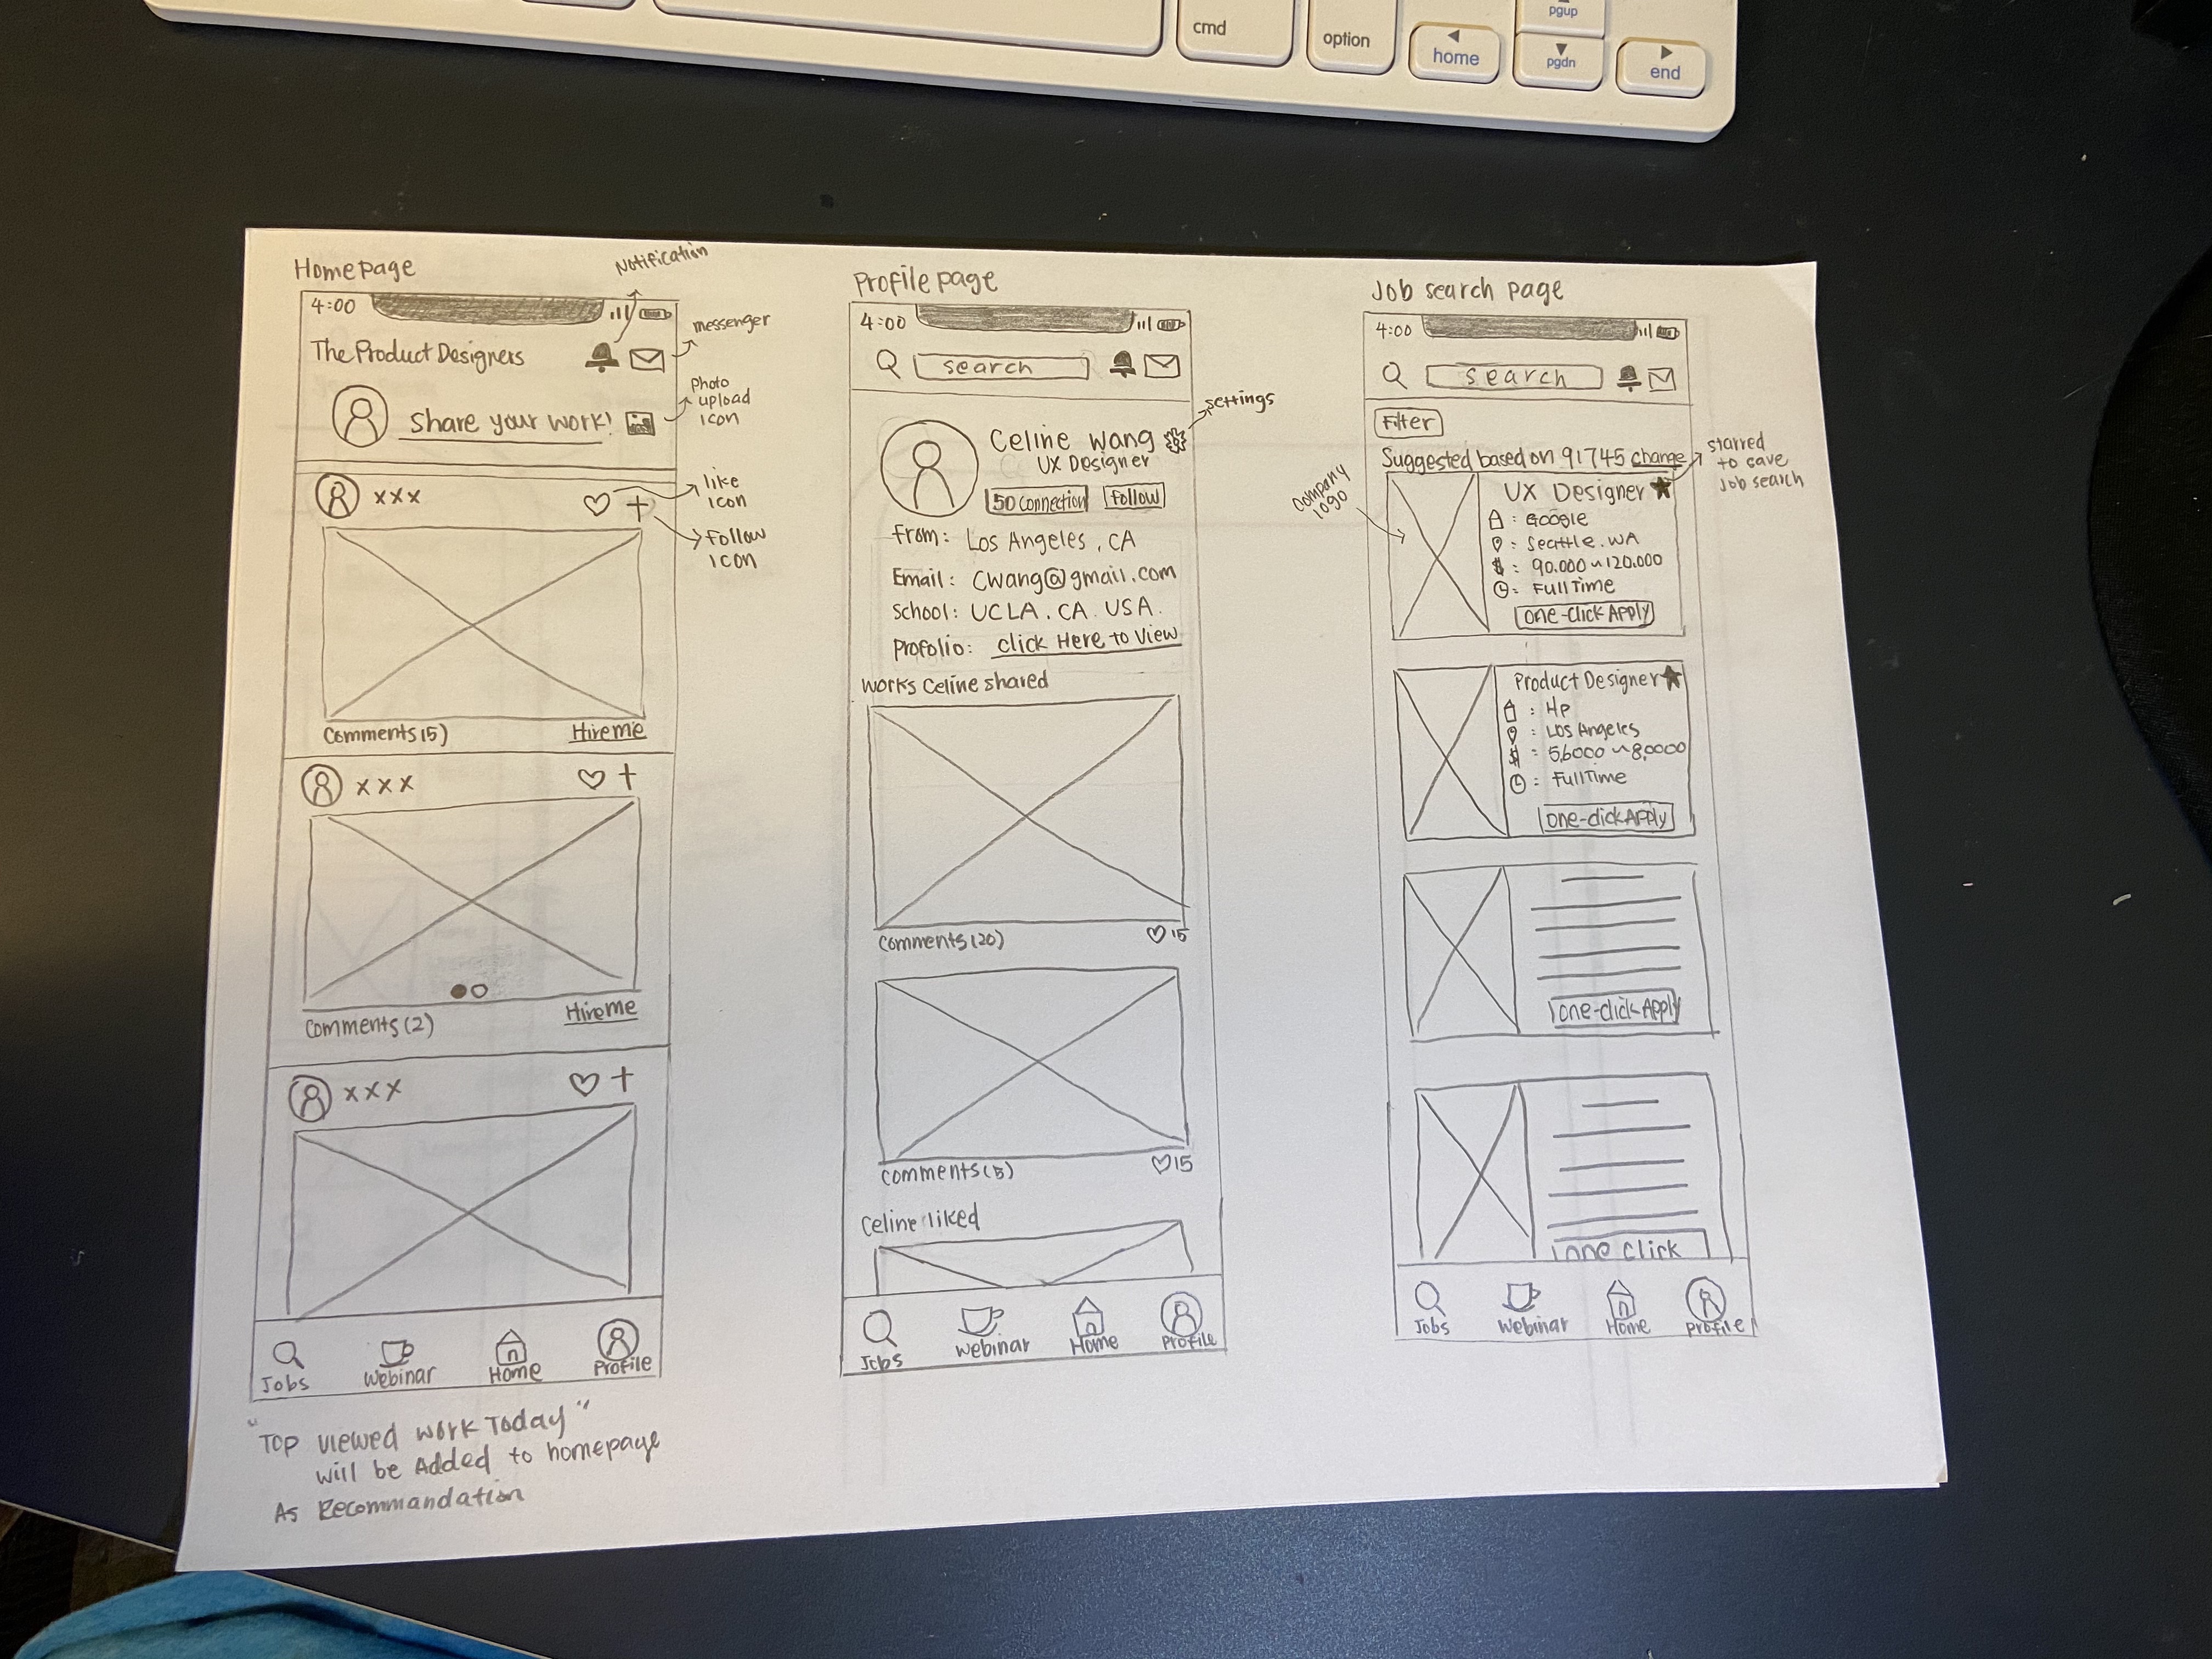 cmd
option
home
pgup
pgdn
end
Homepage
Notification
4:00
messenger
The Product Designers
Photo
upload
icon
Share your work!
xxx
like
icon
Follow
icon
Comments(5)
Hire me
xxx
Comments(2)
Hire me
xxx
Jobs
Webinar
Home
Profile
"Top viewed work Today"
will be Added to homepage
As Recommandation
Profile page
4:00
search
settings
Celine Wang
UX Designer
50 Connection
Follow
From: Los Angeles, CA
Email: Cwang@gmail.com
School: UCLA. CA. USA.
Profolio: Click Here to View
Works Celine shared
Comments(20)
15
Comments(5)
15
Celine liked
Jobs
Webinar
Home
Profile
Job search page
4:00
search
Filter
Suggested based on 91745 change
starred
to save
Job search
company
logo
UX Designer
: Google
: Seattle. WA
$ : 90.000~120.000
: FullTime
One-Click Apply
Product Designer
: Hp
: Los Angeles
$ : 56000~80000
: FullTime
One-click Apply
One-click Apply
One Click
Jobs
Webinar
Home
Profile